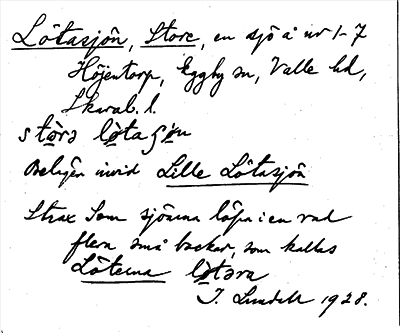 Lötasjön, Store, en sjö å nr 1-7
Höjentorp, Eggby sn, Valle hd,
Skarab. l.
stɷrə lɷtaʃɷn
Belägen invid Lille Lötasjön
Strax som sjöarna löpa i en rad
flera små backar, som kallas
Löterna lɷtəra
J. Lundell 1928.